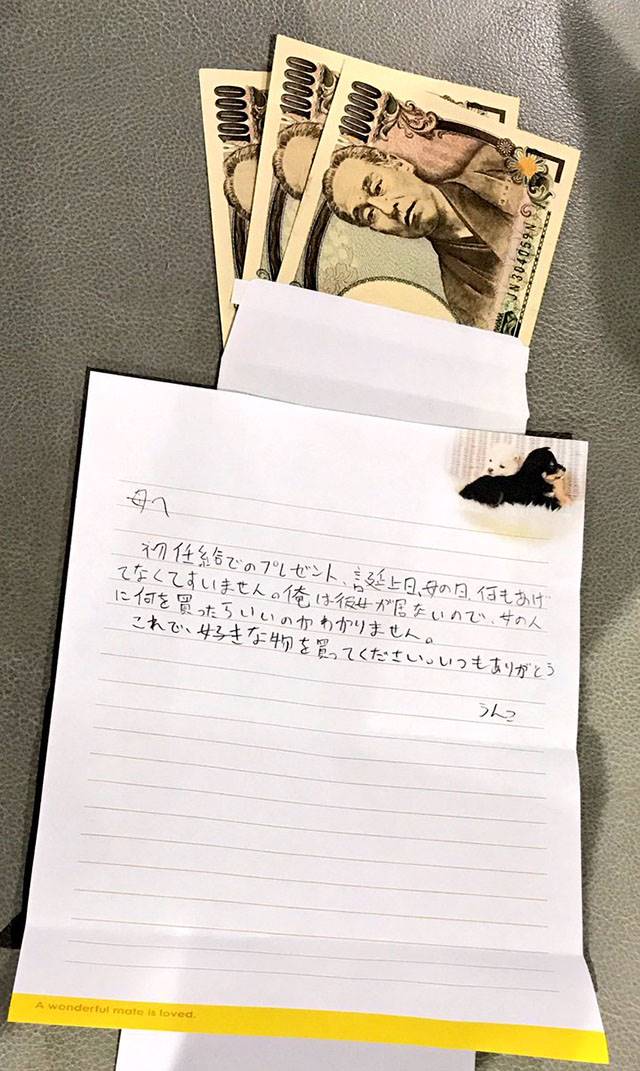 10000
10000
10000
JN304059N
母へ
初任給でのプレゼント、誕生日、母の日、何もあげ
てなくてすいません。俺は彼女が居ないので、女の人
に何を買ったらいいのかわかりません。
これで、好きな物を買ってください。いつもありがとう
うんこ
A wonderful mate is loved.